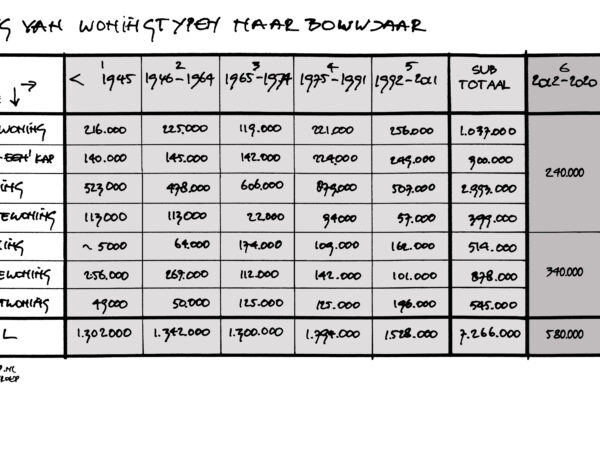 G VAN WONINGTYPEN NAAR BOUWJAAR
1 2 3 4 5 SUB 6
< 1945 1946-1964 1965-1974 1975-1991 1992-2011 TOTAAL 2012-2020
WONING 216.000 225.000 119.000 221.000 256.000 1.037.000
EEN' KAP 140.000 145.000 142.000 224.000 249.000 900.000
240.000
ING 523000 478.000 606.000 879.000 507.000 2.993.000
EWONING 113000 113000 22.000 94000 57.000 399.000
ING ~ 5000 64.000 174.000 109.000 162.000 514.000
EWONING 256.000 267.000 112.000 142.000 101.000 878.000 340.000
TWONING 49000 50.000 125.000 125.000 196.000 545.000
L 1.302000 1.342.000 1.300.000 1.794.000 1.528.000 7.266.000 580.000
P.NL
ROEP